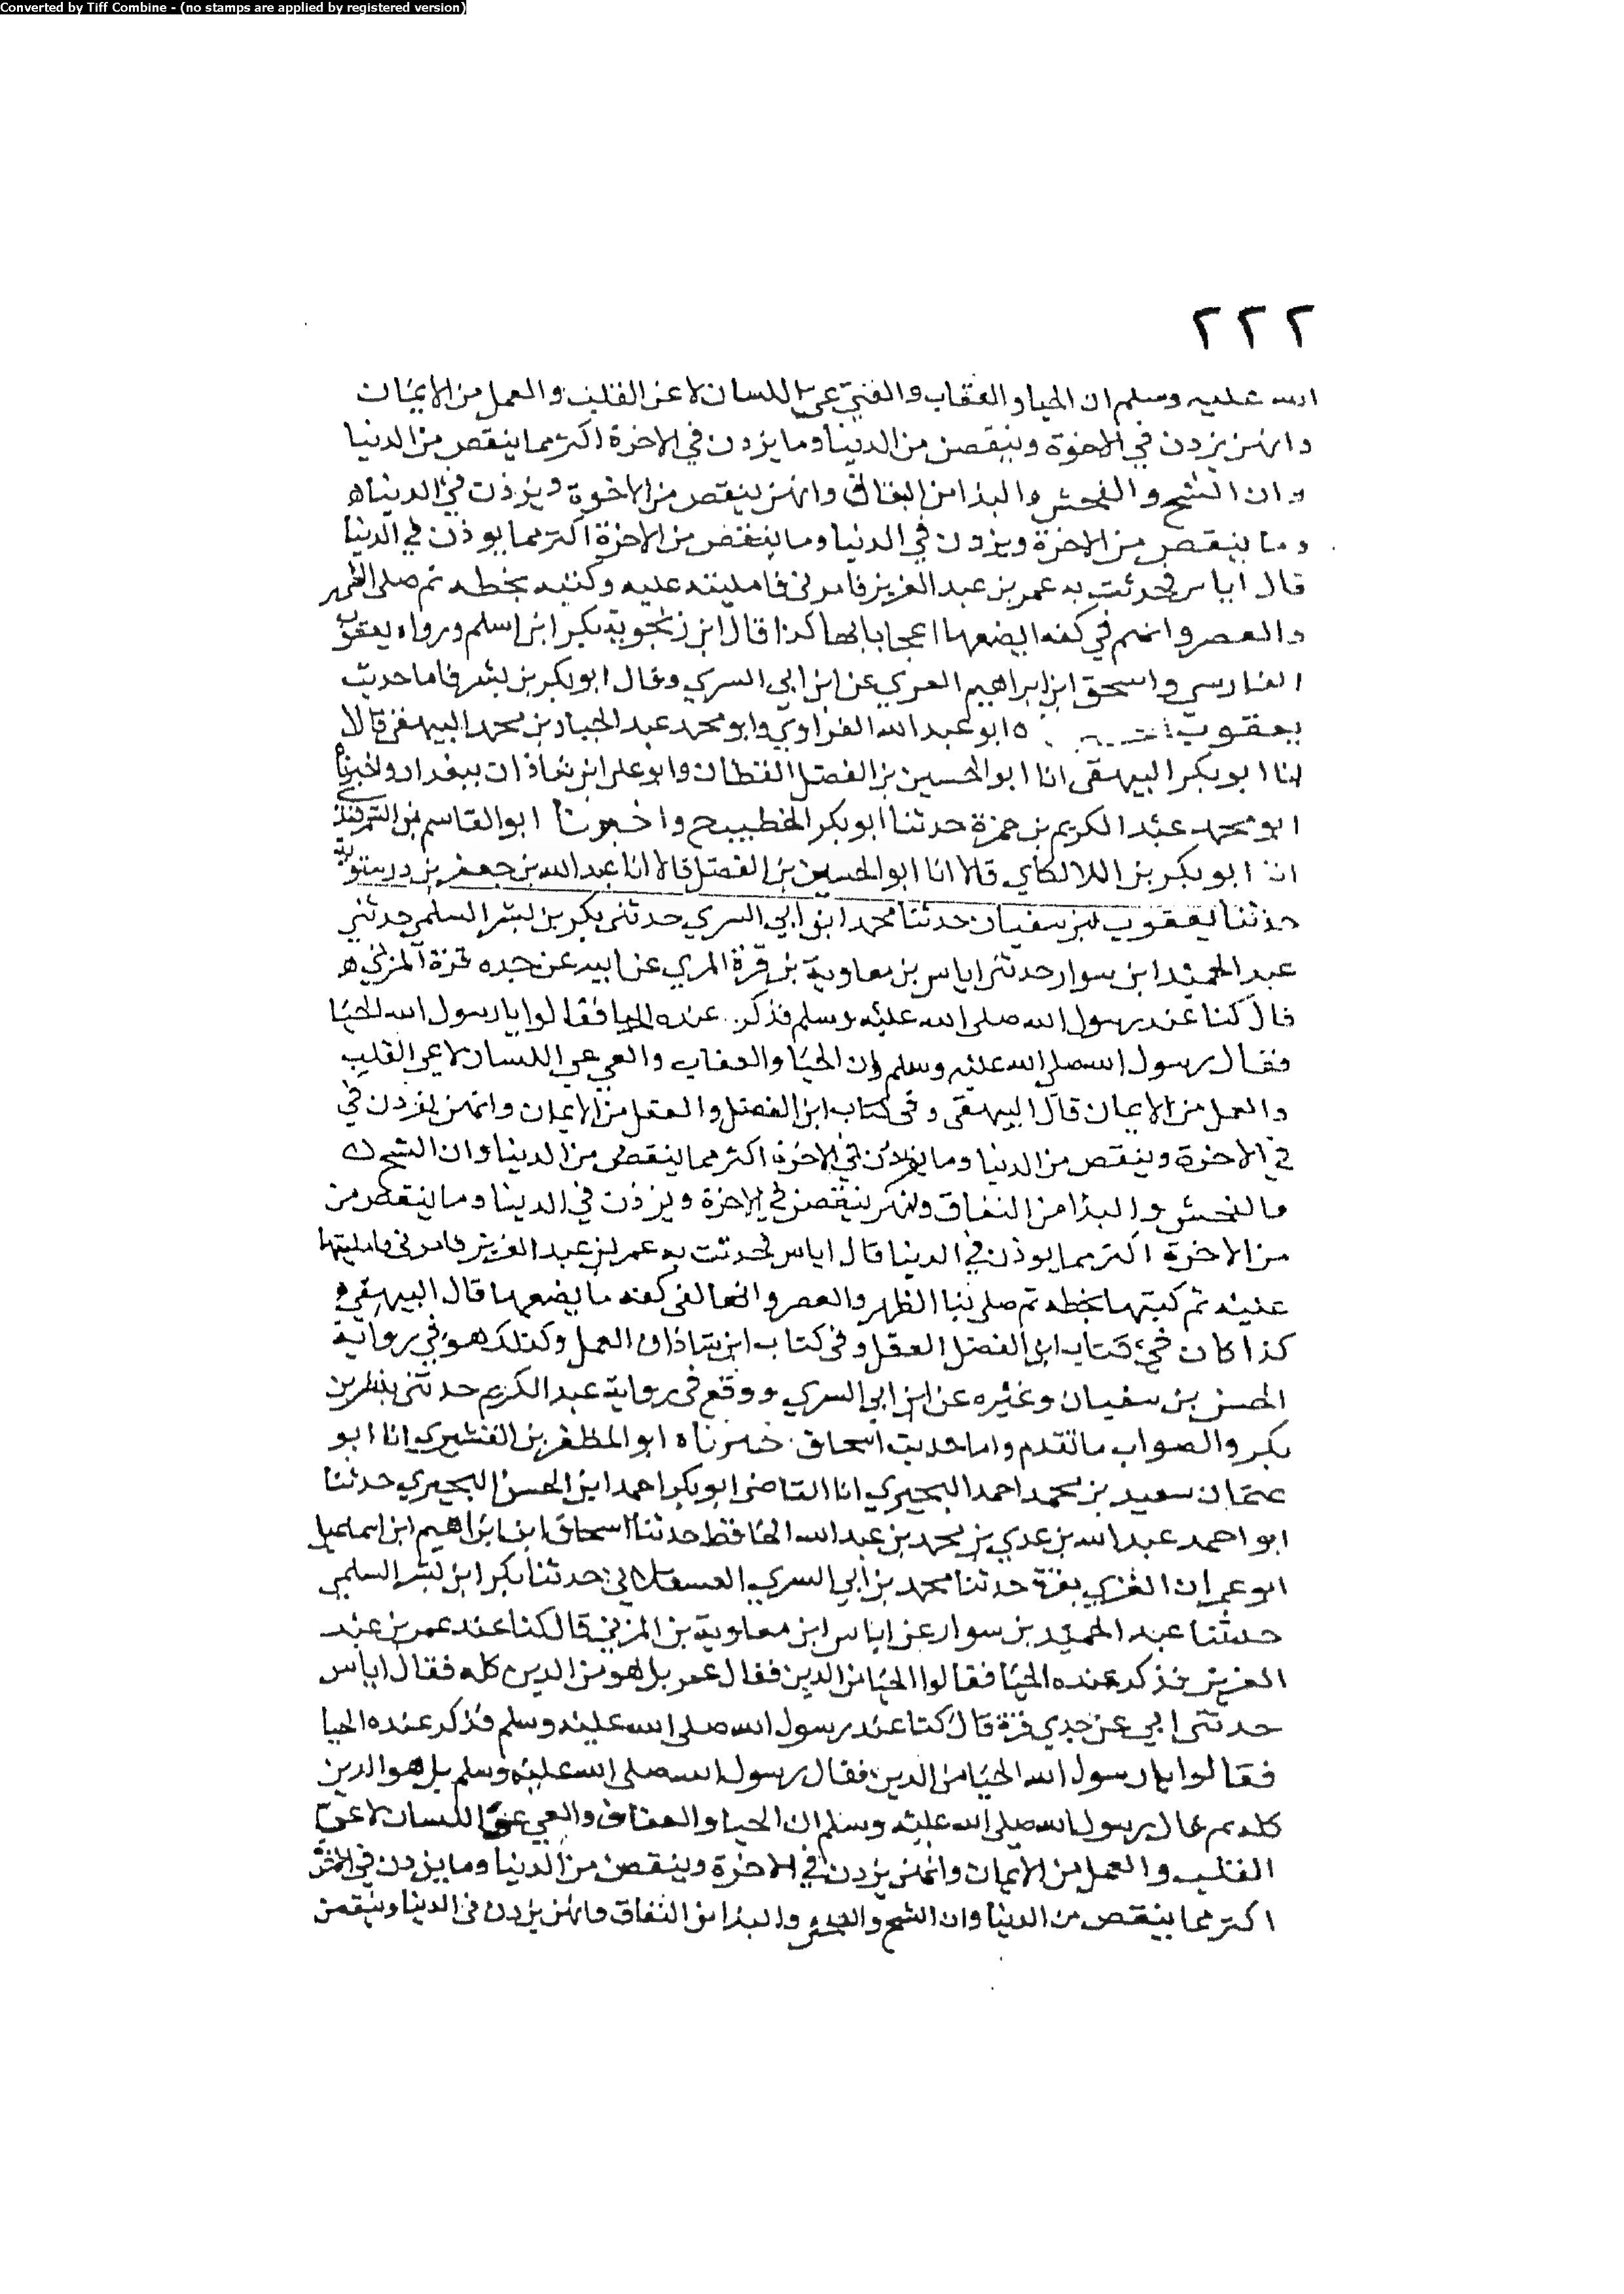 Converted by Tiff Combine - (no stamps are applied by registered version)
٢٢٢
الله عليه وسلم ان الحيا والعقاب والغيّ عيّ اللسان لا عن القلب والعمل من الايمان
وانهن يزدن في الاخرة وينقصن من الدينا وما يزدن في الاخرة اكثر مما ينقص من الدنيا
وان الشح والفحش والبذا من النفاق وانهن ينقص من الاخرة ويزذن في الديناه
وما ينقص من الاخرة ويزدن في الدنيا وما ينقص من الاخرة اكثر مما يوذن في الدنيا
قال اياس فحدثت به عمر بن عبد العزيز فامرني فامليته عليه وكتبه بخطه ثم صلى الظهر
والعصر وانهم في كفه ايضعها اعجابا بها كذا قال ابن زنجوية بكر ابن اسلم ورواه يعقوب
الفارسي واسحق ابن ابراهيم العري عن ابن ابي السري وقال ابو بكر بن بشر فاما حديث
يعقوب ه ابو عبد الله الفراوي وابو محمد عبد الجبار بن محمد البيهقى قالا
انا ابو بكر البيهقى انا ابو الحسين بن الفضل القطان وابو على ابن شاذان ببغداد واخبرنا
ابو محمد عبد الكريم بن حمزة حدثنا ابو بكر الخطيب ح واخبرنا ابو القاسم بن السمرقندي
انا ابو بكر بن اللالكاي قالا انا ابو الحسين بن الفضل قالا انا عبد الله بن جعفر بن درستوية
حدثنا يعقوب بن سفيان حدثنا محمد ابن ابي السري حدثني بكر بن بشر السلمي حدثني
عبد الحميد ابن سوار حدثني اياس بن معاوية بن قرة المري عن ابيه عن جده قرة المزني ه
قال كنا عند رسول الله صلى الله عليه وسلم فذكر عنده الحيا فقالوا يا رسول الله الحيا
فقال رسول الله صلى الله عليه وسلم ان الحيا والعفاب والعي عي اللسان لا عي القلب
والعمل من الايمان قال البيهقى وفى كتاب ابن الفضل والعقل من الايمان وانهن يزدن في
في الاخرة وينقص من الدنيا وما يزدن في الاخرة اكثر مما ينقص من الدينا وان الشح
والفحش والبذا من النفاق وانهن ينقصن في الاخرة ويزذن في الدينا وما ينقص من
من الاخرة اكثر مما يوذن في الدينا قال اياس فحدثت به عمر بن عبد العزيز فامرني فامليتها
عليه ثم كتبها بخطه ثم صلى بنا الظهر والعصر وانها لفى كفه ما يضعها قال البيهقي ه
كذا كان في كتاب ابن الفضل العقل وفى كتاب ابن شاذان العمل وكذلك هو في رواية
الحسن بن سفيان وغيره عن ابن ابي السري ووقع فى رواية عبد الكريم حدثني بشر بن
بكر والصواب ما تقدم واما حديث اسحاق خبرناه ابو المظفر بن القشيري انا ابو
عثمان سعيد بن محمد احمد البحيري انا القاضى ابو بكر احمد ابن الحسن البحيري حدثنا
ابو احمد عبد الله بن عدي بن محمد بن عبد الله الحافظ حدثنا اسحاق ابن ابراهيم ابن اسماعيل
ابو عمران الغزي بغزة حدثنا محمد بن ابي السري العسقلاني حدثنا بكر ابن بشر السلمي
حدثنا عبد الحميد بن سوار عن اياس ابن معاوية بن المزني قال كنا عند عمر بن عبد
العزيز فذكر عنده الحيا فقالوا الحيا من الدين فقال عمر بل هو من الدين كله فقال اياس
حدثني ابي عن جدي قرة قال كنا عند رسول الله صلى الله عليه وسلم فذكر عنده الحيا
فقالوا يا رسول الله الحيا من الدين فقال رسول الله صلى الله عليه وسلم بل هو الدين
كله ثم قال رسول الله صلى الله عليه وسلم ان الحيا والعفاف والعي عي اللسان لا عيّ
القلب والعمل من الايمان وانهن يزدن في الاخرة وينقصن من الدنيا وما يزدن في الاخرة
اكثر مما ينقص من الدينا وان الشح والفحش والبذا من النفاق وانهن يزدن في الدينا وينقصن